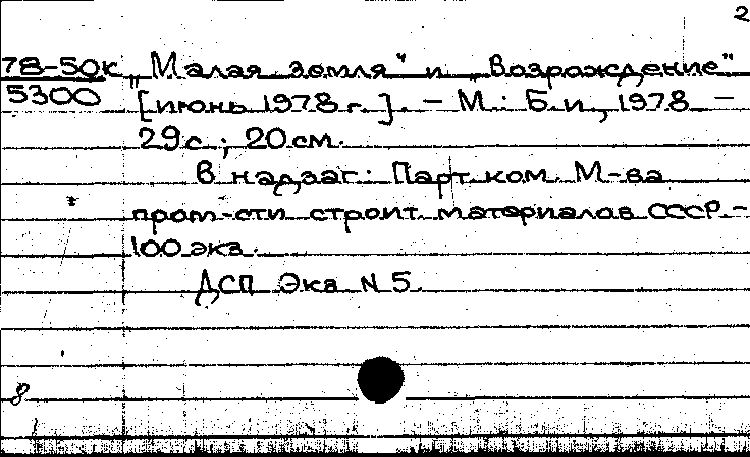 2
78-50к „Малая земля" и „Возрождение"
5300 [июнь 1978 г.]. - М.: Б.и, 1978 -
29с.; 20см.
В надзаг: Парт. ком. М-ва
пром-сти строит. материалов СССР.-
100 экз.
ДСП Экз N 5.
8